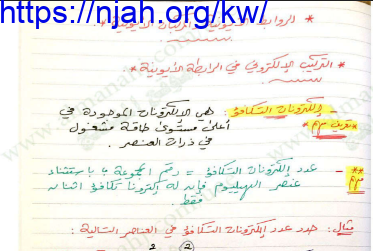 https://njah.org/kw/
* الروابط الأيونية والمركبات الأيونية *
* التركيب الإلكتروني في الرابطة الأيونية *
- إلكترونات التكافؤ : هي الإلكترونات الموجودة في
* تعريف مهم *
أعلى مستوى طاقة مشغول
في ذرات العنصر .
** مهم - عدد إلكترونات التكافؤ = رقم المجموعة ، باستثناء
عنصر الهيليوم فإن له إلكترونا تكافؤ اثنان
فقط .
مثال : حدد عدد إلكترونات التكافؤ في العناصر التالية :
2 2